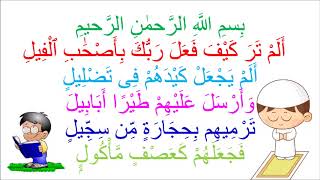 بِسمِ اللَّهِ الرَّحمٰنِ الرَّحيمِ
أَلَمْ تَرَ كَيْفَ فَعَلَ رَبُّكَ بِأَصْحَٰبِ ٱلْفِيلِ
أَلَمْ يَجْعَلْ كَيْدَهُمْ فِى تَضْلِيلٍ
وَأَرْسَلَ عَلَيْهِمْ طَيْرًا أَبَابِيلَ
تَرْمِيهِم بِحِجَارَةٍ مِّن سِجِّيلٍ
فَجَعَلَهُمْ كَعَصْفٍ مَّأْكُولٍ